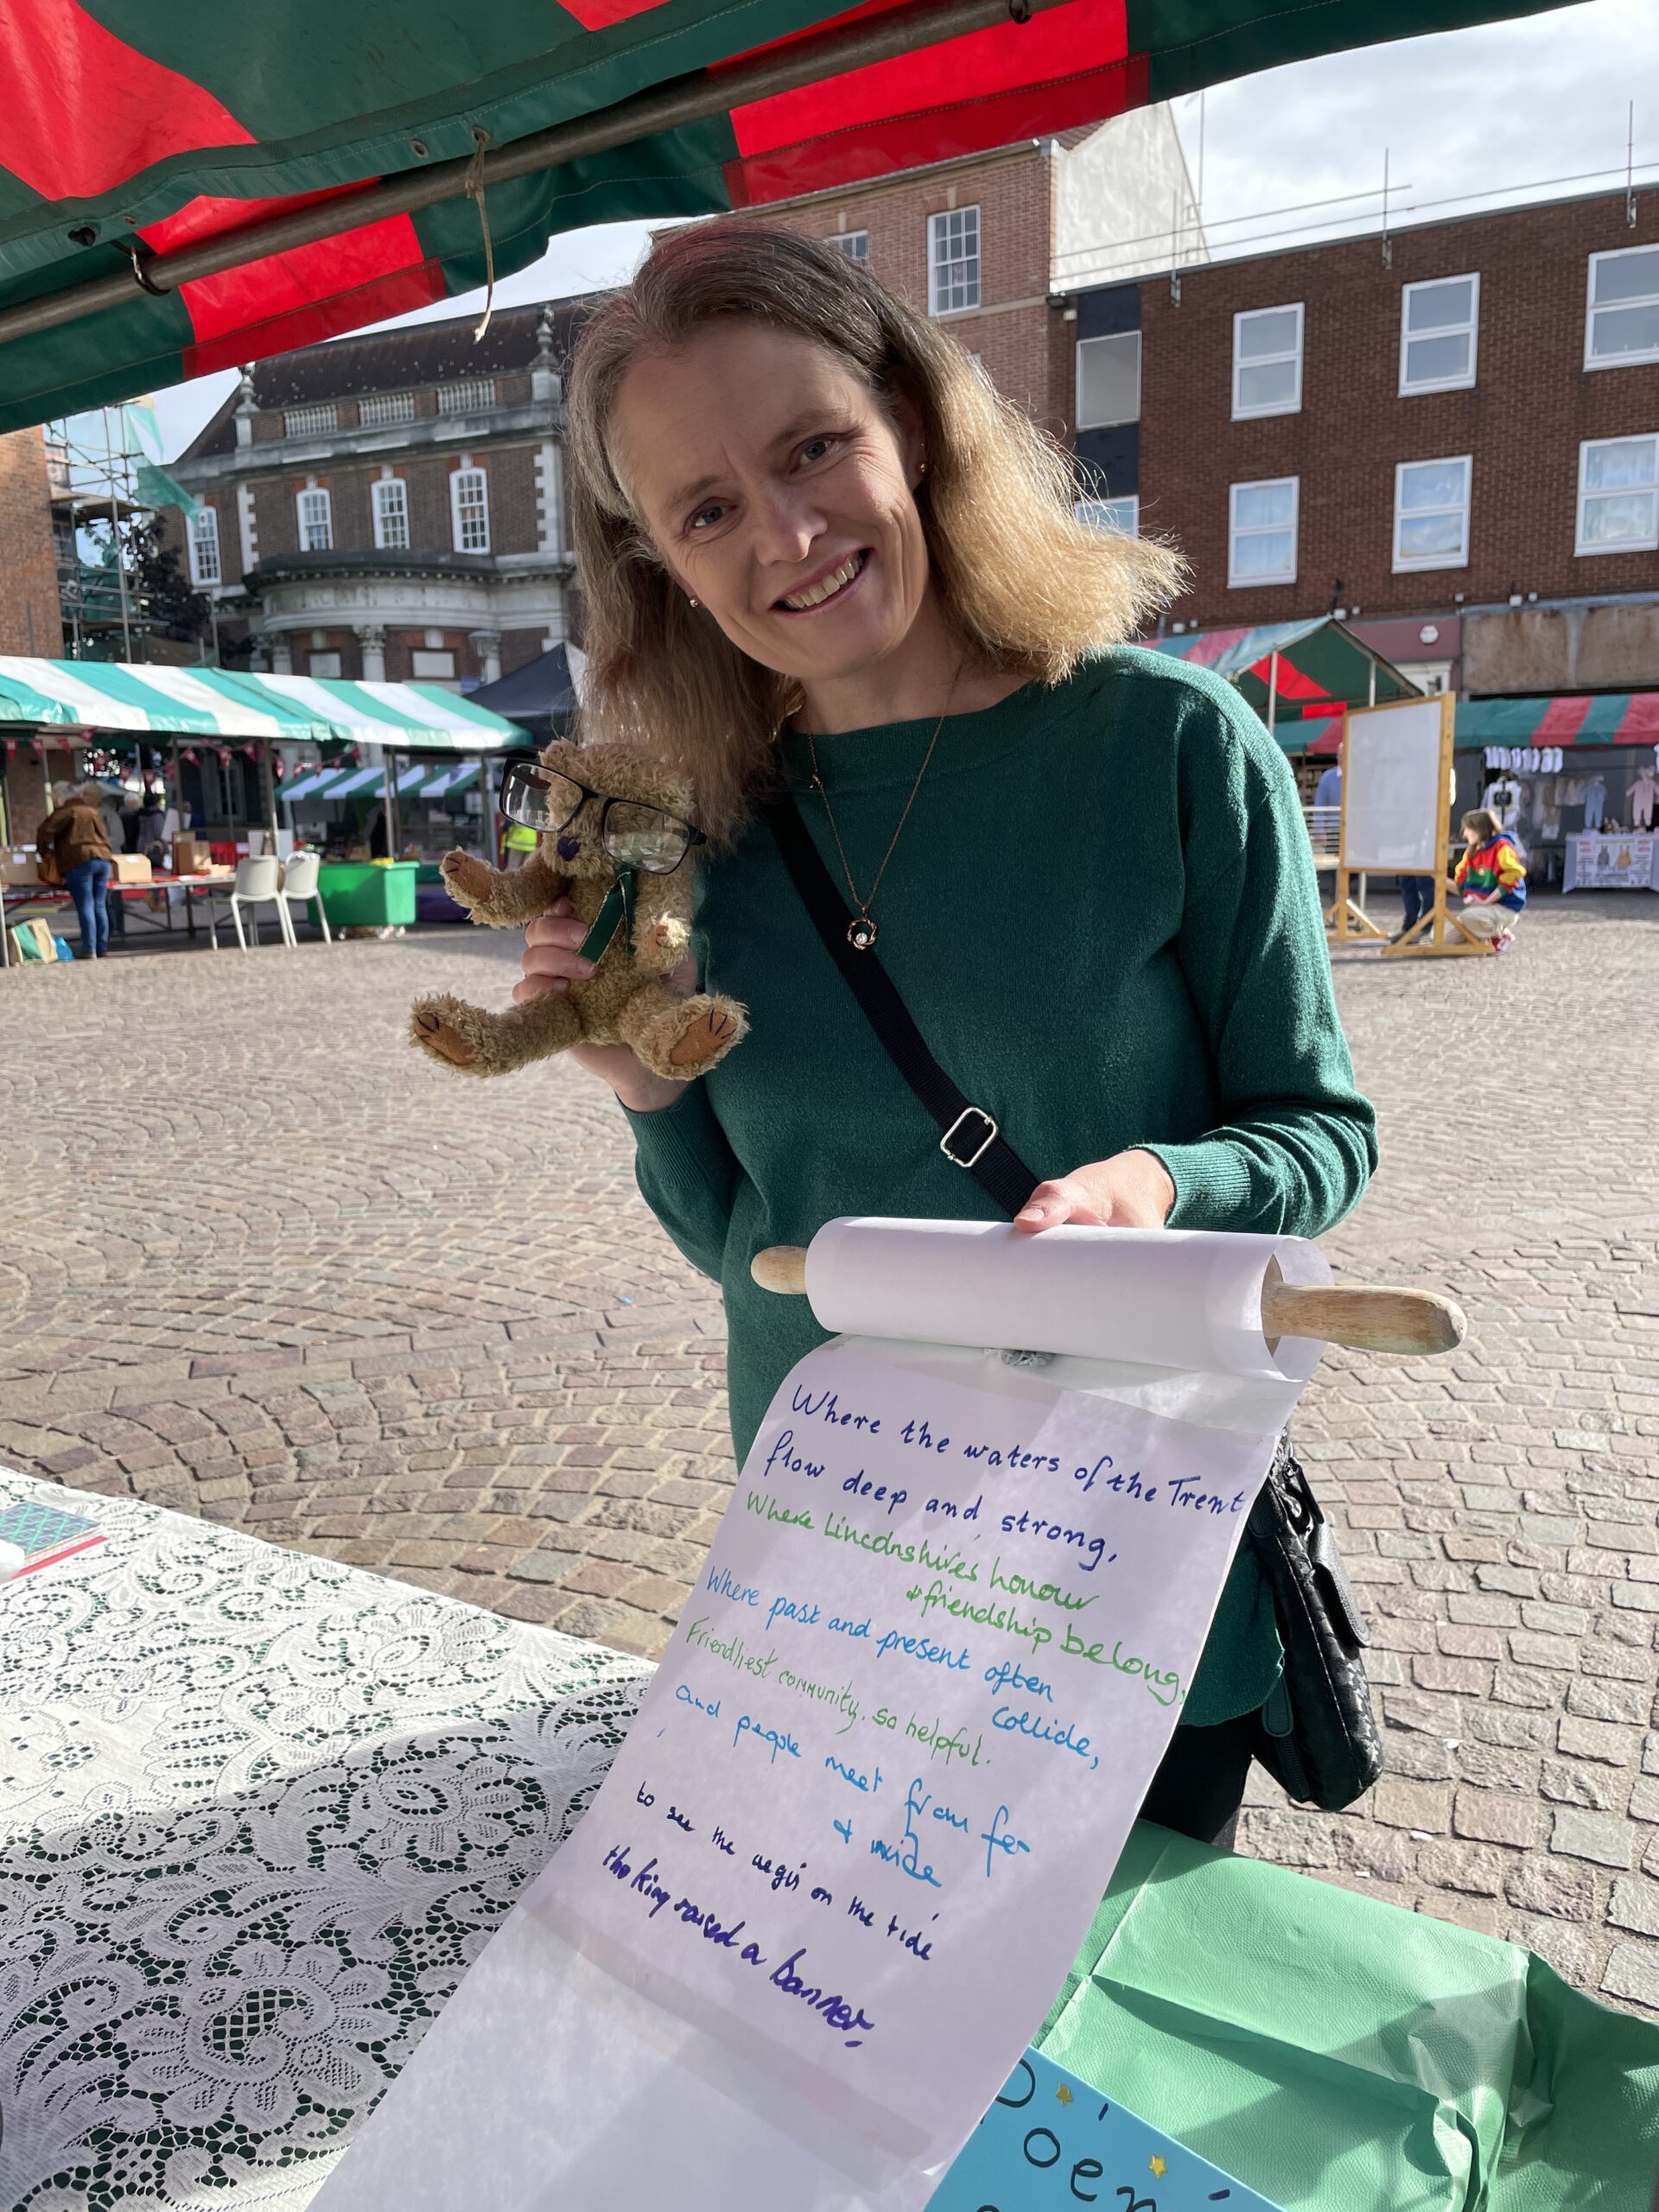 Where the waters of the Trent
flow deep and strong,
Where Lincolnshire's honour
& friendship belong,
Where past and present often
Collide,
Friendliest community. so helpful.
and people meet from far
& wide
to see the aegir on the tide
the king raised a banner,
Poem